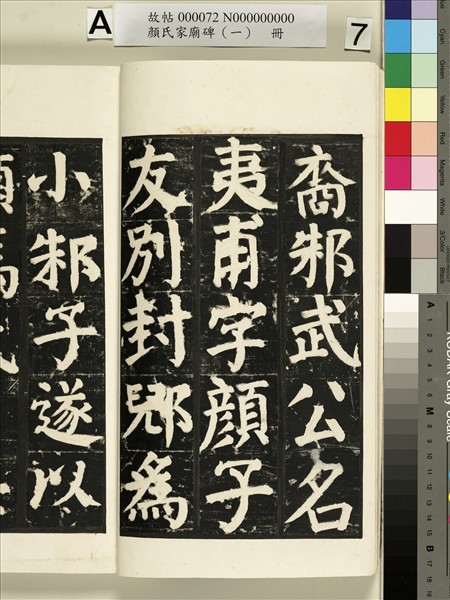 A
故帖 000072 N000000000
顏氏家廟碑（一） 冊
7
裔邾武公名
夷甫字顏子
友別封郳為
小邾子遂以
Cyan
Green
Yellow
Red
Magenta
White
3/Color
Black
A 1 2 3 4 5 6 M 8 9 10 11 12 13 14 15 B 17 18 19